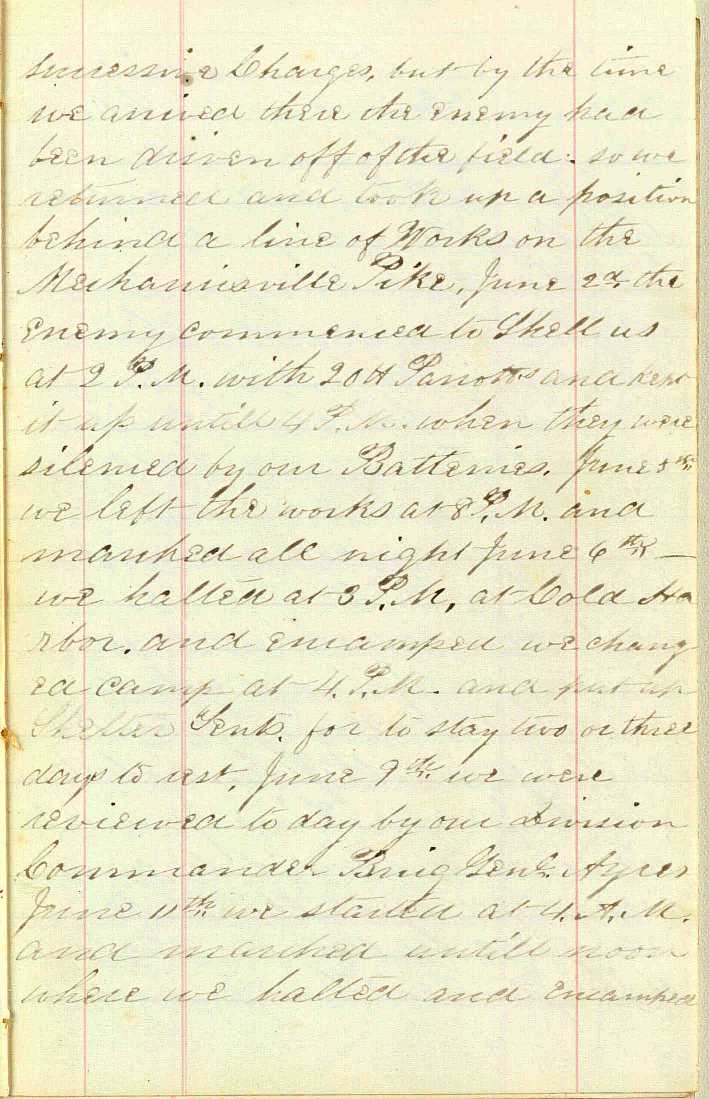 successive Charges, but by the time
we arived there the enemy had
been driven off of the field. so we
returned and took up a position
behind a line of Works on the
Mechanicsville Pike, June 2d, the
Enemy commenced to Shell us
at 2 P.M. with 20 lb Parrotts and kept
it up untill 4 P.M. when they were
silenced by our Batteries. June 5th
we left the works at 8 P.M. and
marched all night June 6th —
we halted at 3 P.M, at Cold Ha
rbor. and encamped we chang
ed camp at 4. P.M. and put up
Shelter Tents. for to stay two or three
days to rest, June 9th. we were
reviewed to day by our Division
Commander Brig Genl. Ayres
June 11th we started at 4. A.M.
and marched untill noon
where we halted and encamped